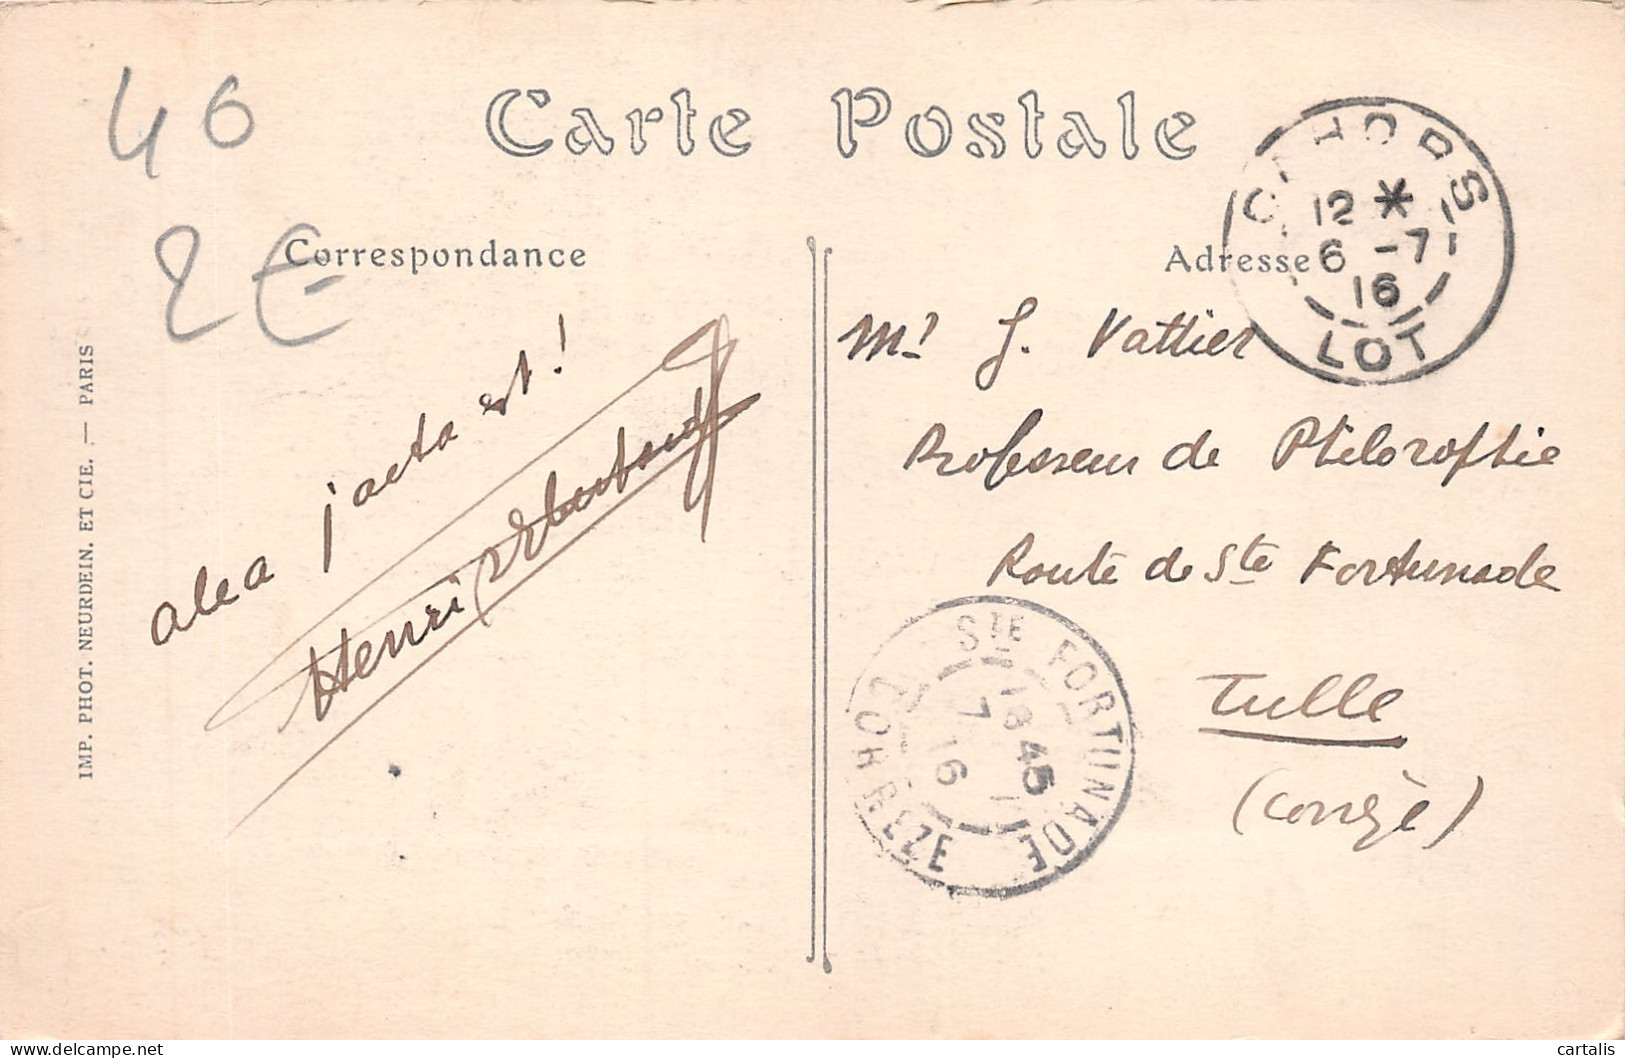 46
2€
Carte Postale
Correspondance
Adresse
CAHORS
12 *
6 - 7
16
LOT
alea jacta est !
Henri
Mr J. Vattier
Professeur de Philosophie
Route de Ste Fortunade
Tulle
(Corrèze)
STE FORTUNADE
18 45
7 - 7
16
CORREZE
IMP. PHOT. NEURDEIN. ET CIE. — PARIS
cartalis
www.delcampe.net